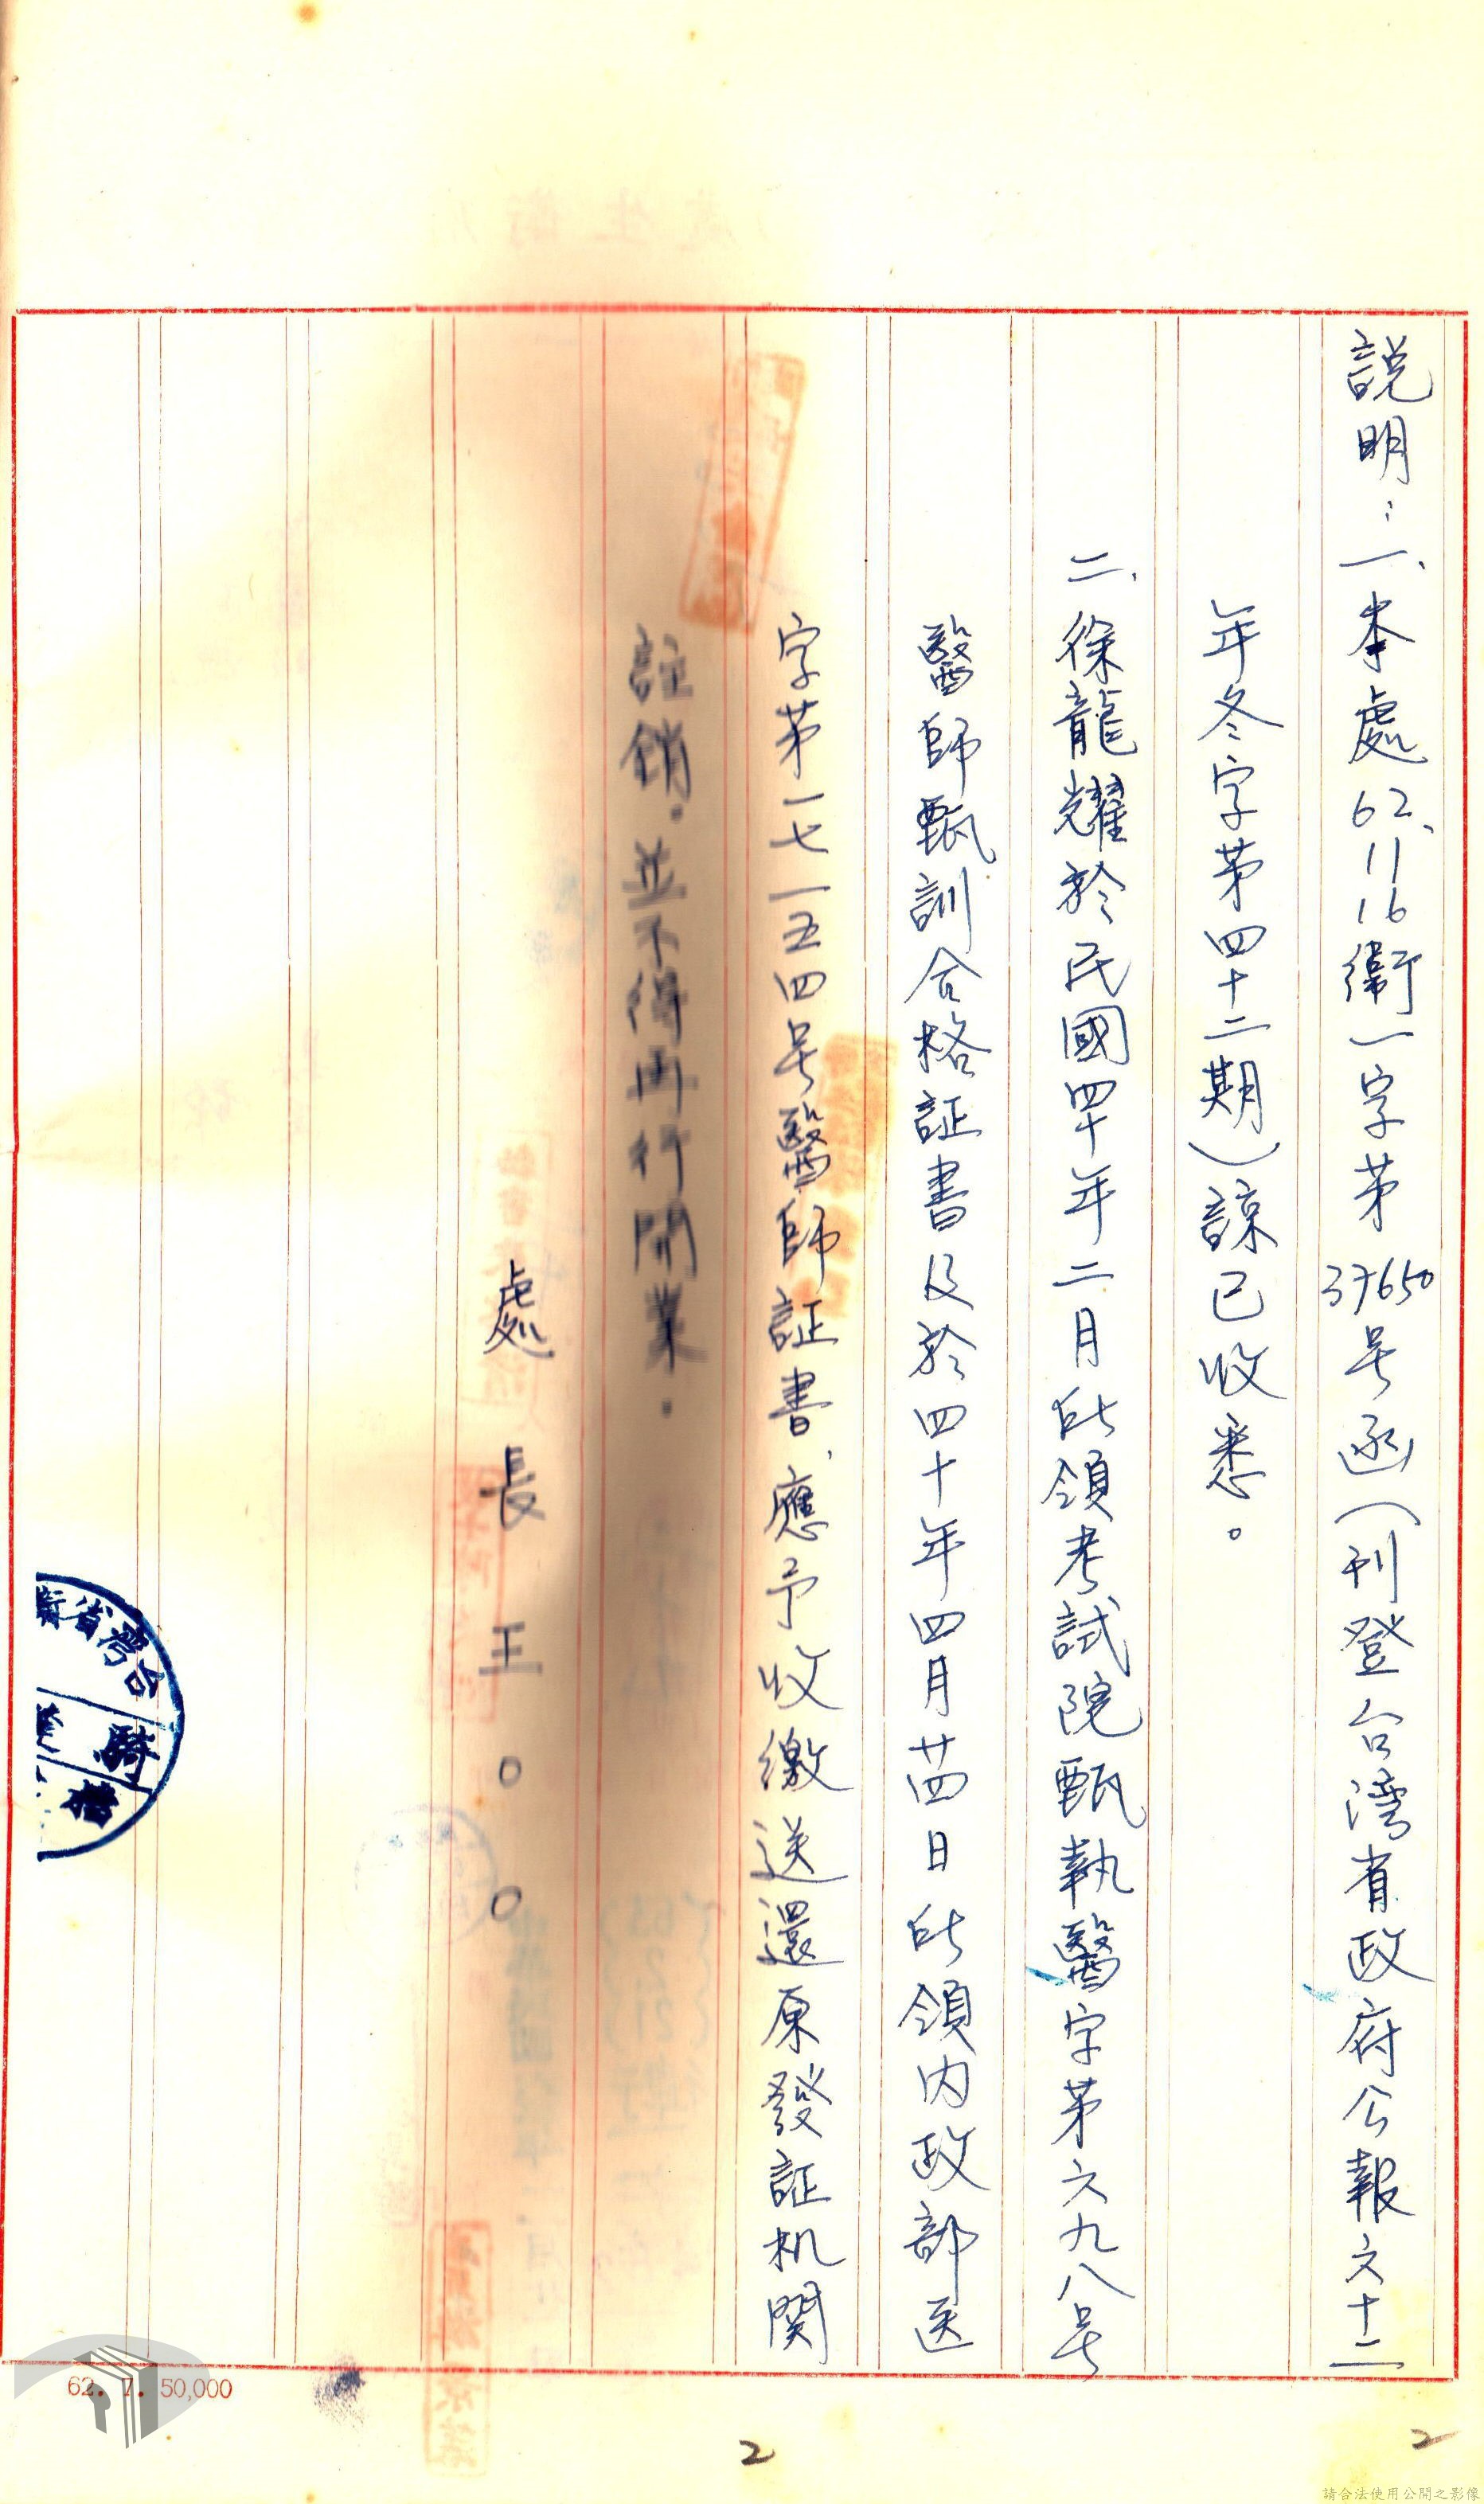 說明：一、本處62.11.16衛一字第37650号函（刊登台湾省政府公報六十二
年冬字第四十二期）諒已收悉。
二、徐龍耀於民國四十年二月所領考試院甄執醫字第六九八号
醫師甄訓合格証書及於四十年四月廿四日所領內政部医
字第一七一五四号醫師証書，應予收繳送還原發証机関
註銷。並不得再行開業。
處長王○○
台灣省衛
騎
62. 7. 50,000
2
2
請合法使用公開之影像